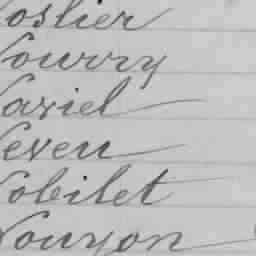 Noslier
Nourry
Naviel
Neveu
Nobilet
Nouyon